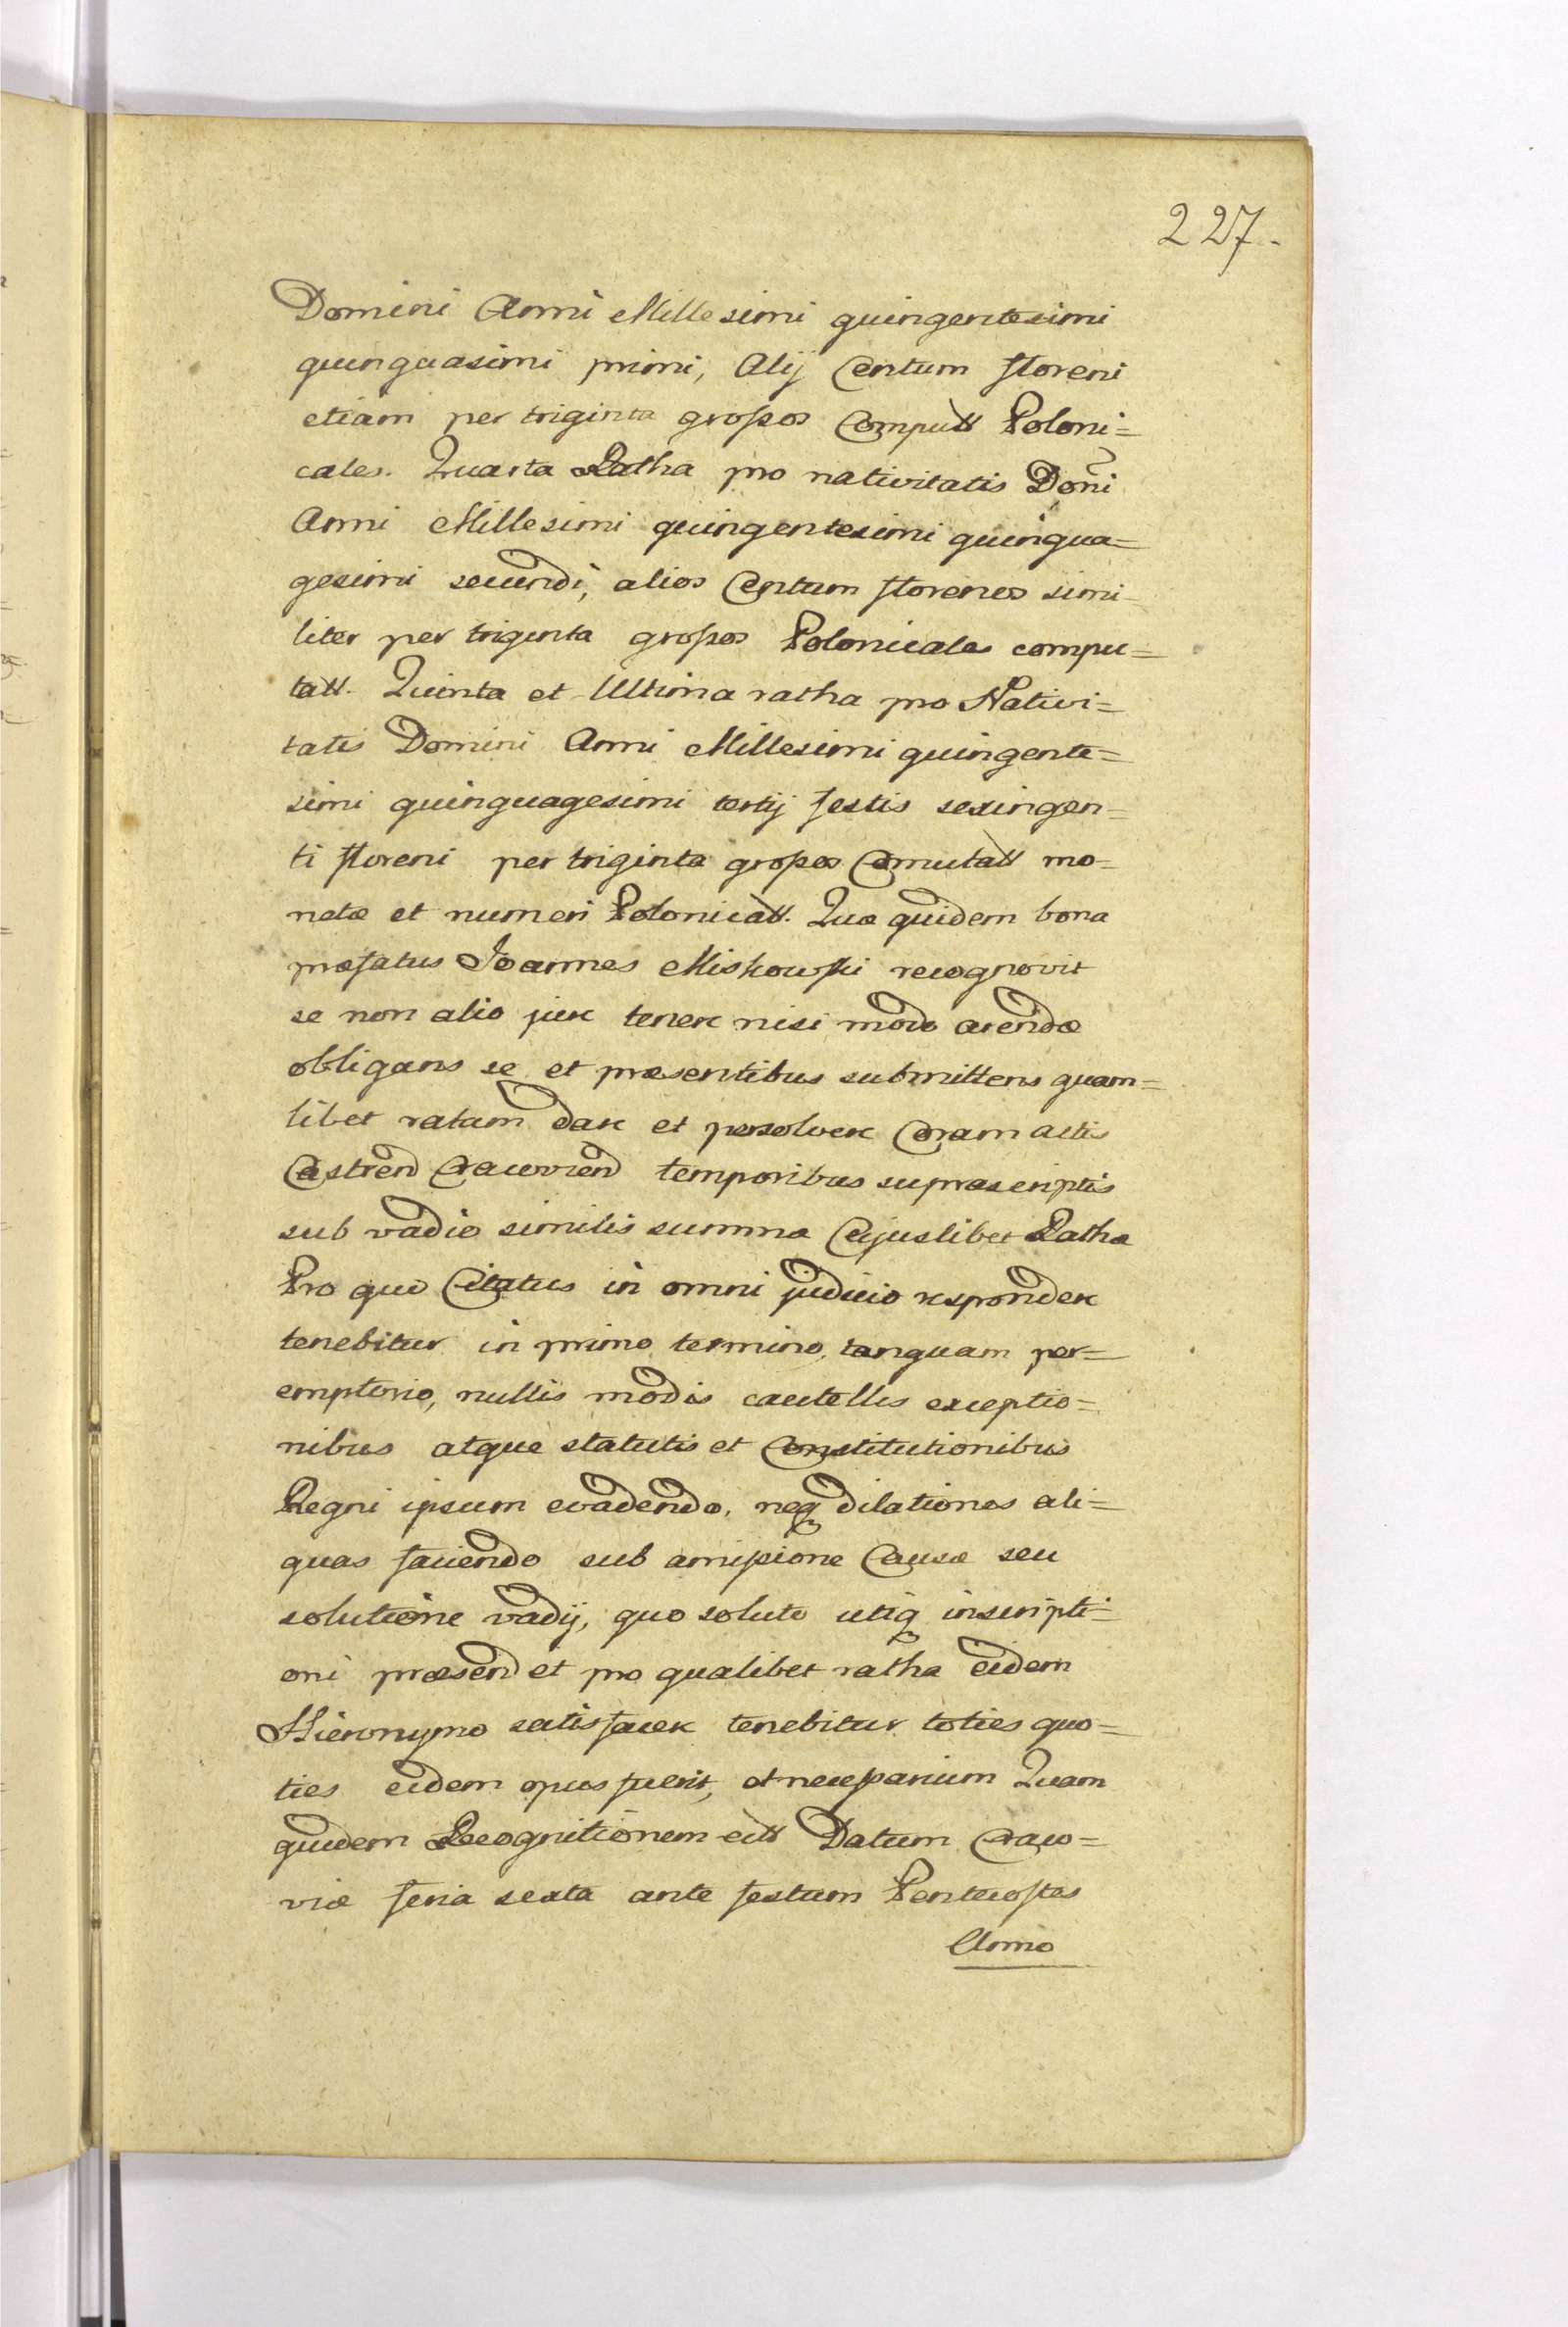 227.
Domini Anni Millesimi quingentesimi
quinquasimi primi, Alij Centum floreni
etiam per triginta grossos Computt Poloni=
cales. Quarta Ratha pro nativitatis Doni
Anni Millesimi quingentesimi quinqua=
gesimi secundi, alios Centum florenos simi=
liter per triginta grossos Polonicales compu=
tatt. Quinta et Ultima ratha pro Nativi=
tatis Domini Anni Millesimi quingente=
simi quinquagesimi tertij festis sexingen=
ti floreni per triginta grossos Comutatt mo=
netæ et numeri Polonicatt. Quæ quidem bona
præfatus Joannes Miskowski recognovit
se non alio jure tenere nisi modo arendæ
obligans se et præsentibus submittens quam=
libet ratam dare et persolvere Coram actis
Castren Cracovien temporibus suprascriptis
sub vadio similis summæ Cujuslibet Rathæ
Pro quo Citatus in omni judicio respondere
tenebitur in primo termino, tanquam per=
emptorio, nullis modis cautellis exceptio=
nibus atque statutis et Constitutionibus
Regni ipsum evadendo, neq dilationes ali=
quas faciendo sub amissione Causæ seu
solutione vadij, quo soluto utiq inscripti=
oni præsen et pro qualibet ratha eidem
Hieronymo satisfacere tenebitur toties quo=
ties eidem opus fuerit, et necessarium Quam
quidem Recognitionem ett Datum Craco=
viæ feria sexta ante festum Pentecostes
Anno